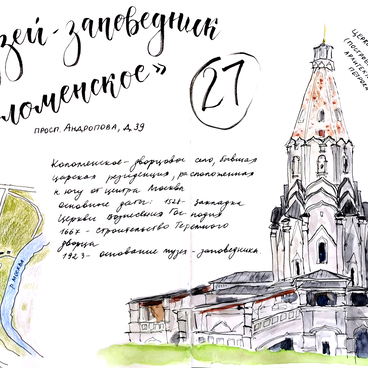 зей-заповедник
ломенское»
просп. Андропова, д.39
27
Церко
(построе
архитек
Петроко
Коломенское - дворцовое село, бывшая
царская резиденция, расположенная
к югу от центра Москвы
основные даты: 1528 - закладка
Церкви Вознесения Господня
1667 - строительство Теремного
дворца
1923 - основание музея-заповедника.
р. Москва